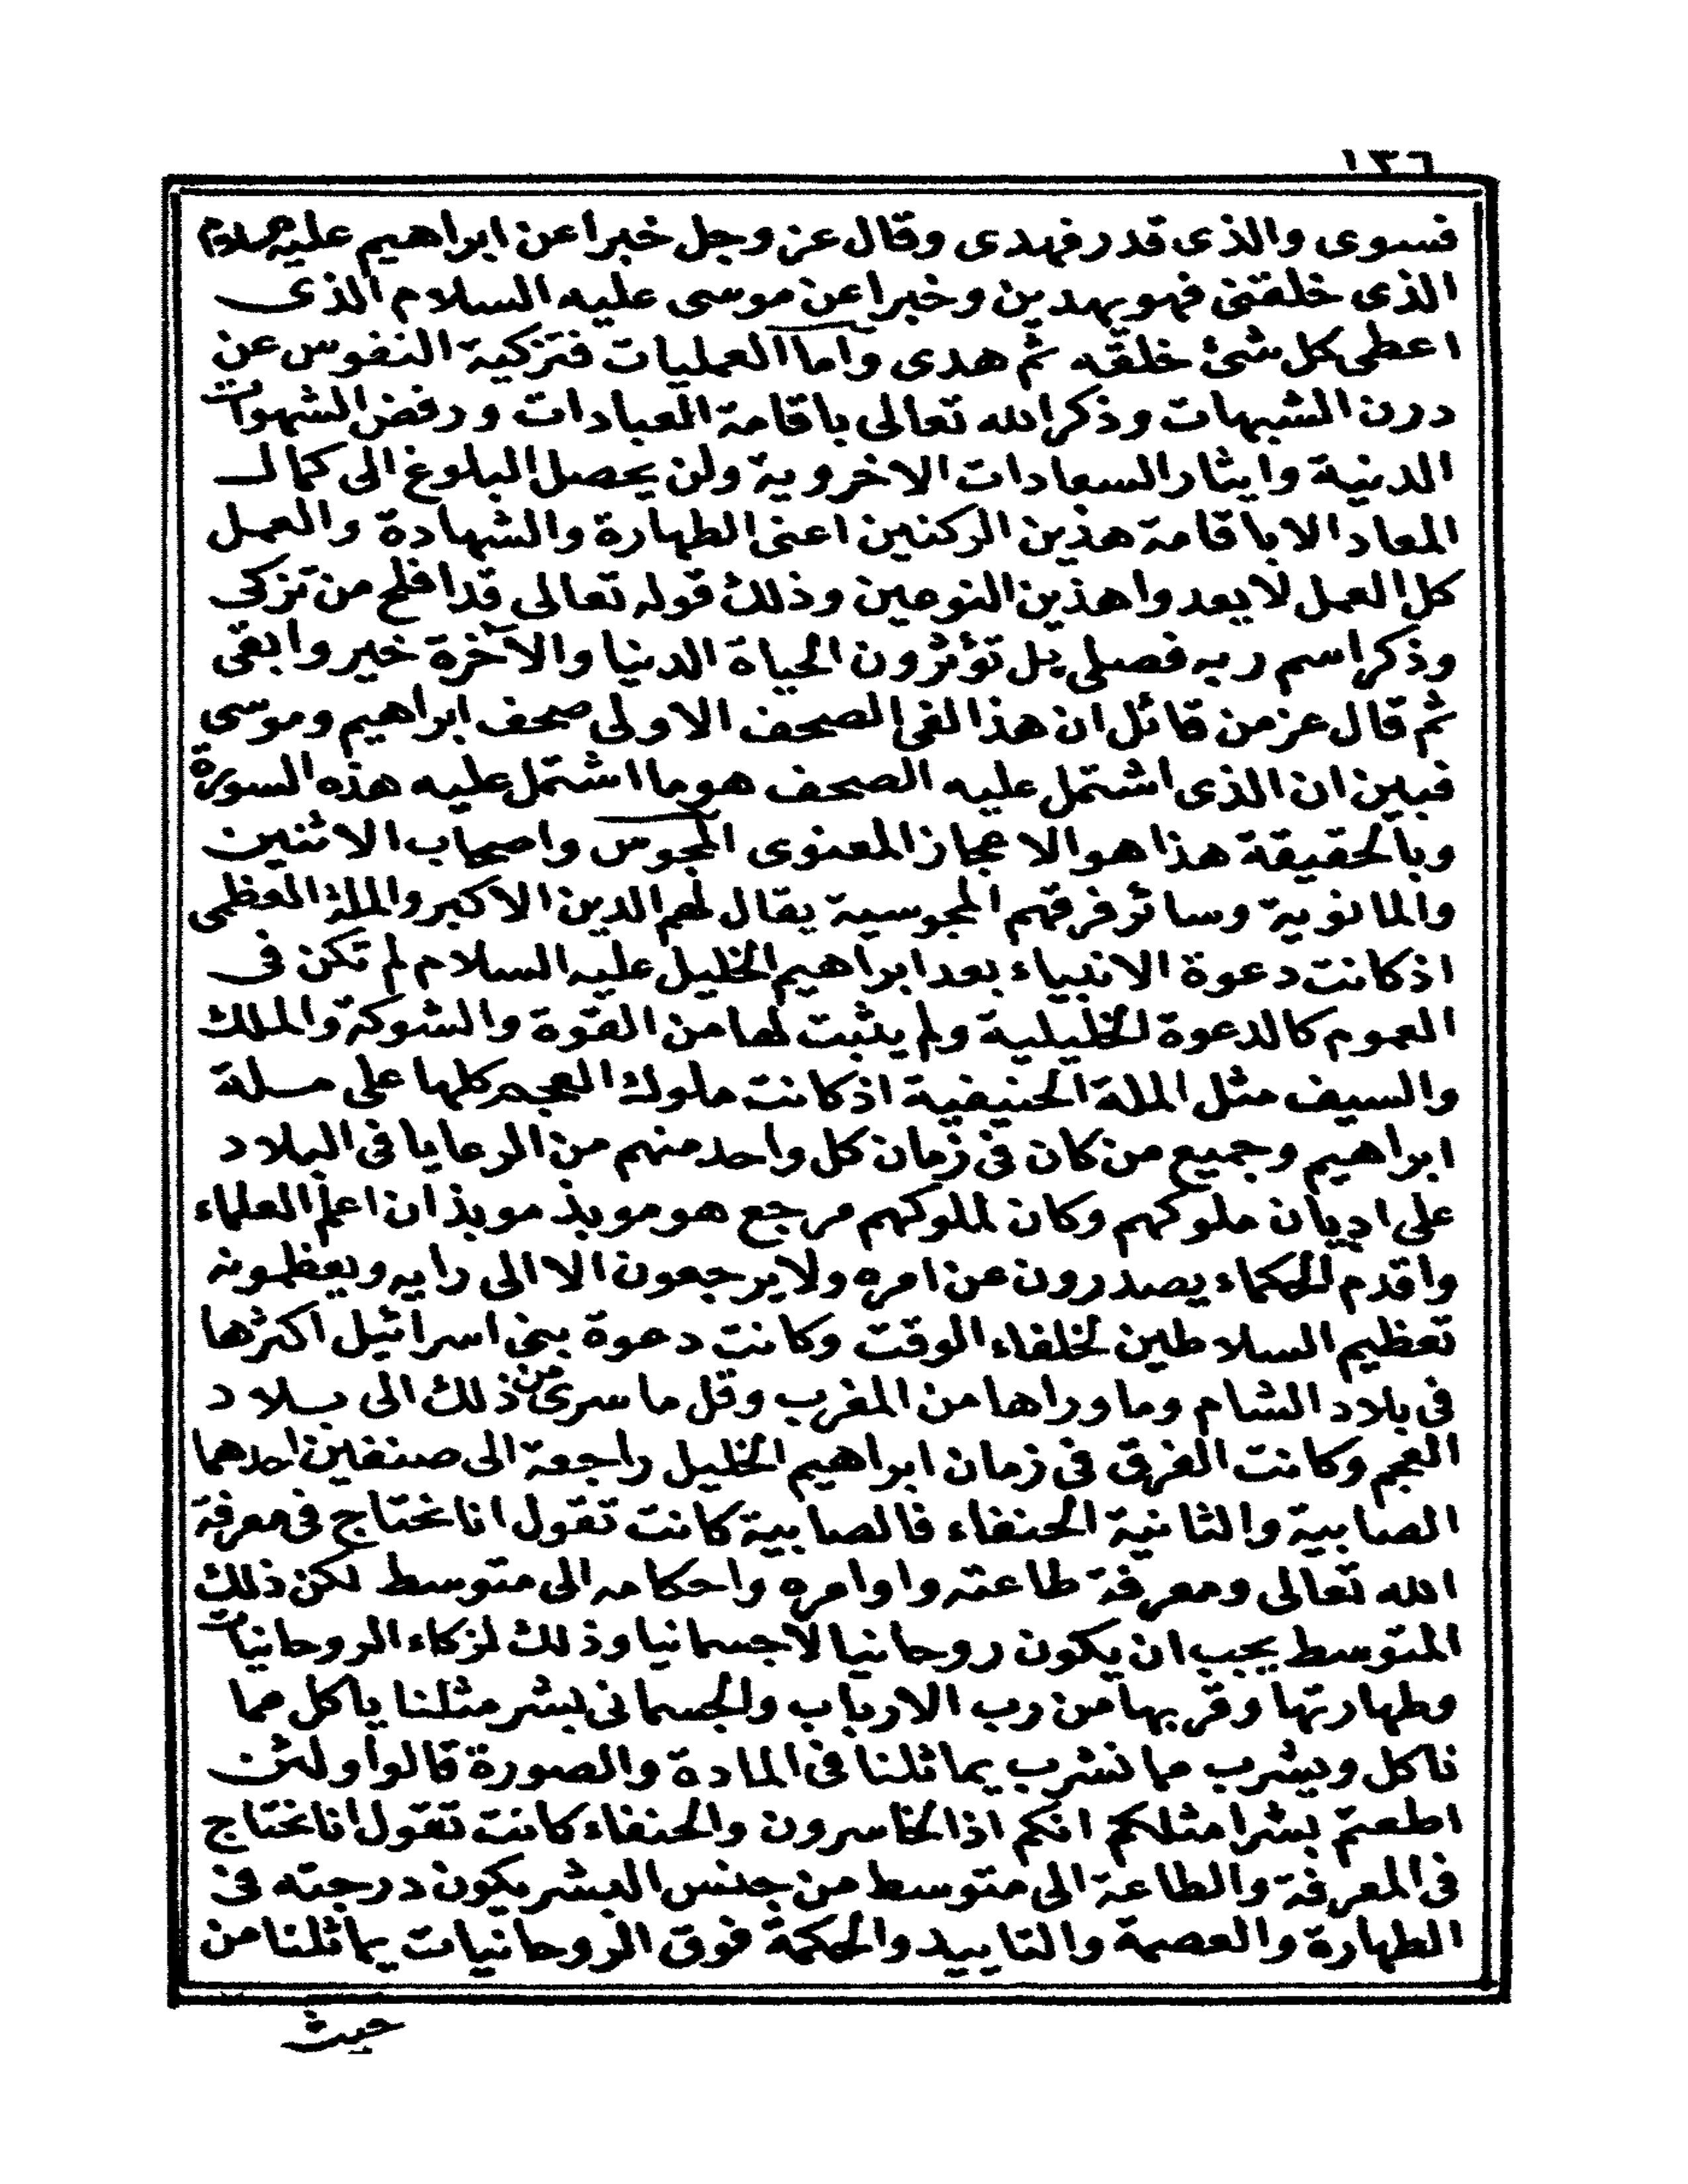 ١٣٦
فسوى والذى قدر فهدى وقال عز وجل خبرا عن ابراهيم عليه السلام
الذى خلقنى فهو يهدين وخبرا عن موسى عليه السلام الذى
اعطى كل شئ خلقه ثم هدى واما العمليات فتزكية النفوس عن
درن الشبهات وذكر الله تعالى باقامة العبادات ورفض الشهوات
الدنية وايثار السعادات الاخروية ولن يحصل البلوغ الى كمال
المعاد الا باقامة هذين الركنين اعنى الطهارة والشهادة والعمل
كل العمل لا يعدوا هذين النوعين وذلك قوله تعالى قد افلح من تزكى
وذكر اسم ربه فصلى بل تؤثرون الحياة الدنيا والآخرة خير وابقى
ثم قال عز من قائل ان هذا لفى الصحف الاولى صحف ابراهيم وموسى
فبين ان الذى اشتمل عليه الصحف هو ما اشتمل عليه هذه السورة
وبالحقيقة هذا هو الاعجاز المعنوى المجوس واصحاب الاثنين
والمانوية وسائر فرقهم المجوسية يقال لهم الدين الاكبر والملة العظمى
اذ كانت دعوة الانبياء بعد ابراهيم الخليل عليه السلام لم تكن فى
العموم كالدعوة الخليلية ولم يثبت لها من القوة والشوكة والملك
والسيف مثل الملة الحنيفية اذ كانت ملوك العجم كلها على ملة
ابراهيم وجميع من كان فى زمان كل واحد منهم من الرعايا فى البلاد
على اديان ملوكهم وكان لملوكهم مرجع هو موبذ موبذان اعلم العلماء
واقدم الحكماء يصدرون عن امره ولا يرجعون الا الى رايه ويعظمونه
تعظيم السلاطين لخلفاء الوقت وكانت دعوة بنى اسرائيل اكثرها
فى بلاد الشام وما وراها من المغرب وقل ما سرى من ذلك الى بلاد
العجم وكانت الفرق فى زمان ابراهيم الخليل راجعة الى صنفين احدهما
الصابية والثانية الحنفاء فالصابية كانت تقول انا نحتاج فى معرفة
الله تعالى ومعرفة طاعته واوامره واحكامه الى متوسط لكن ذلك
المتوسط يجب ان يكون روحانيا لا جسمانيا وذلك لزكاء الروحانيات
وطهارتها وقربها من رب الارباب والجسمانى بشر مثلنا ياكل مما
ناكل ويشرب مما نشرب يماثلنا فى المادة والصورة قالوا ولئن
اطعتم بشرا مثلكم انكم اذا لخاسرون والحنفاء كانت تقول انا نحتاج
فى المعرفة والطاعة الى متوسط من جنس البشر يكون درجته فى
الطهارة والعصمة والتاييد والحكمة فوق الروحانيات يماثلنا من
حيث